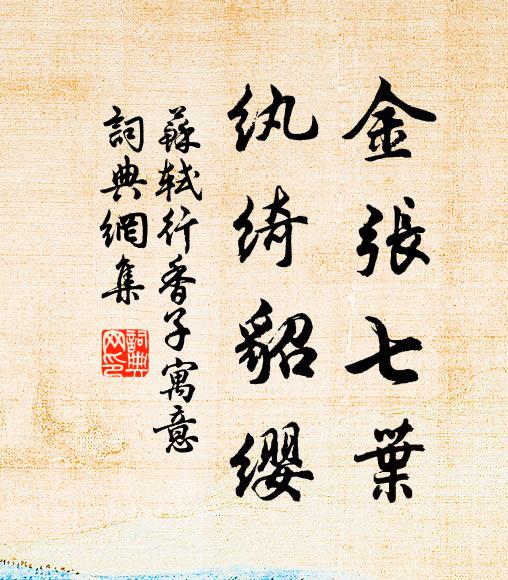 金張七葉
紈綺貂纓
蘇軾行香子寓意
詞典網集
詞典
网印